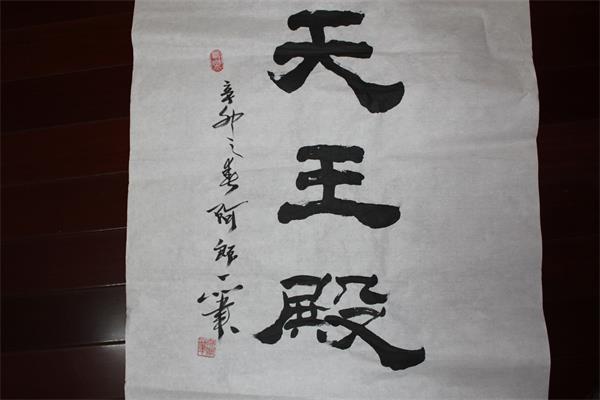 天王殿
辛卯之春阿郎